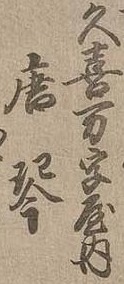 久喜万字屋内
唐琴